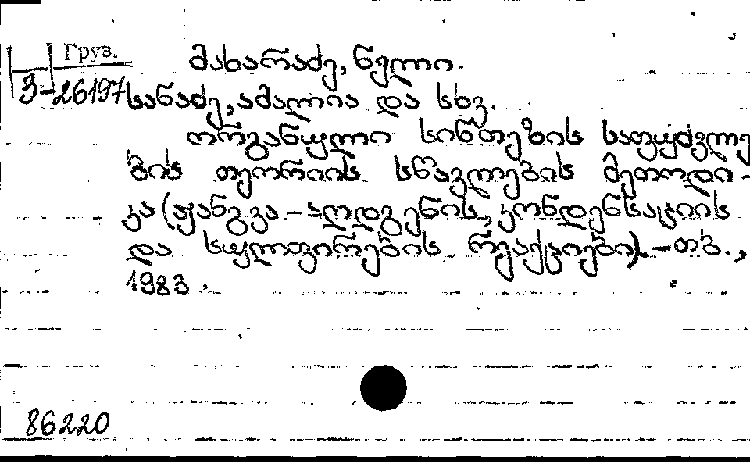 Груз. მახარაძე, ნელი.
3-26197 სანაძე, ამალია და სხვ.
ორგანული სინთეზის საფუძვლე
ბის თეორიის სწავლების მეთოდი-
კა (ჟანგვა-აღდგენის, კონდენსაციის
და სულფირების რეაქციები). - თბ.,
1983.
86220